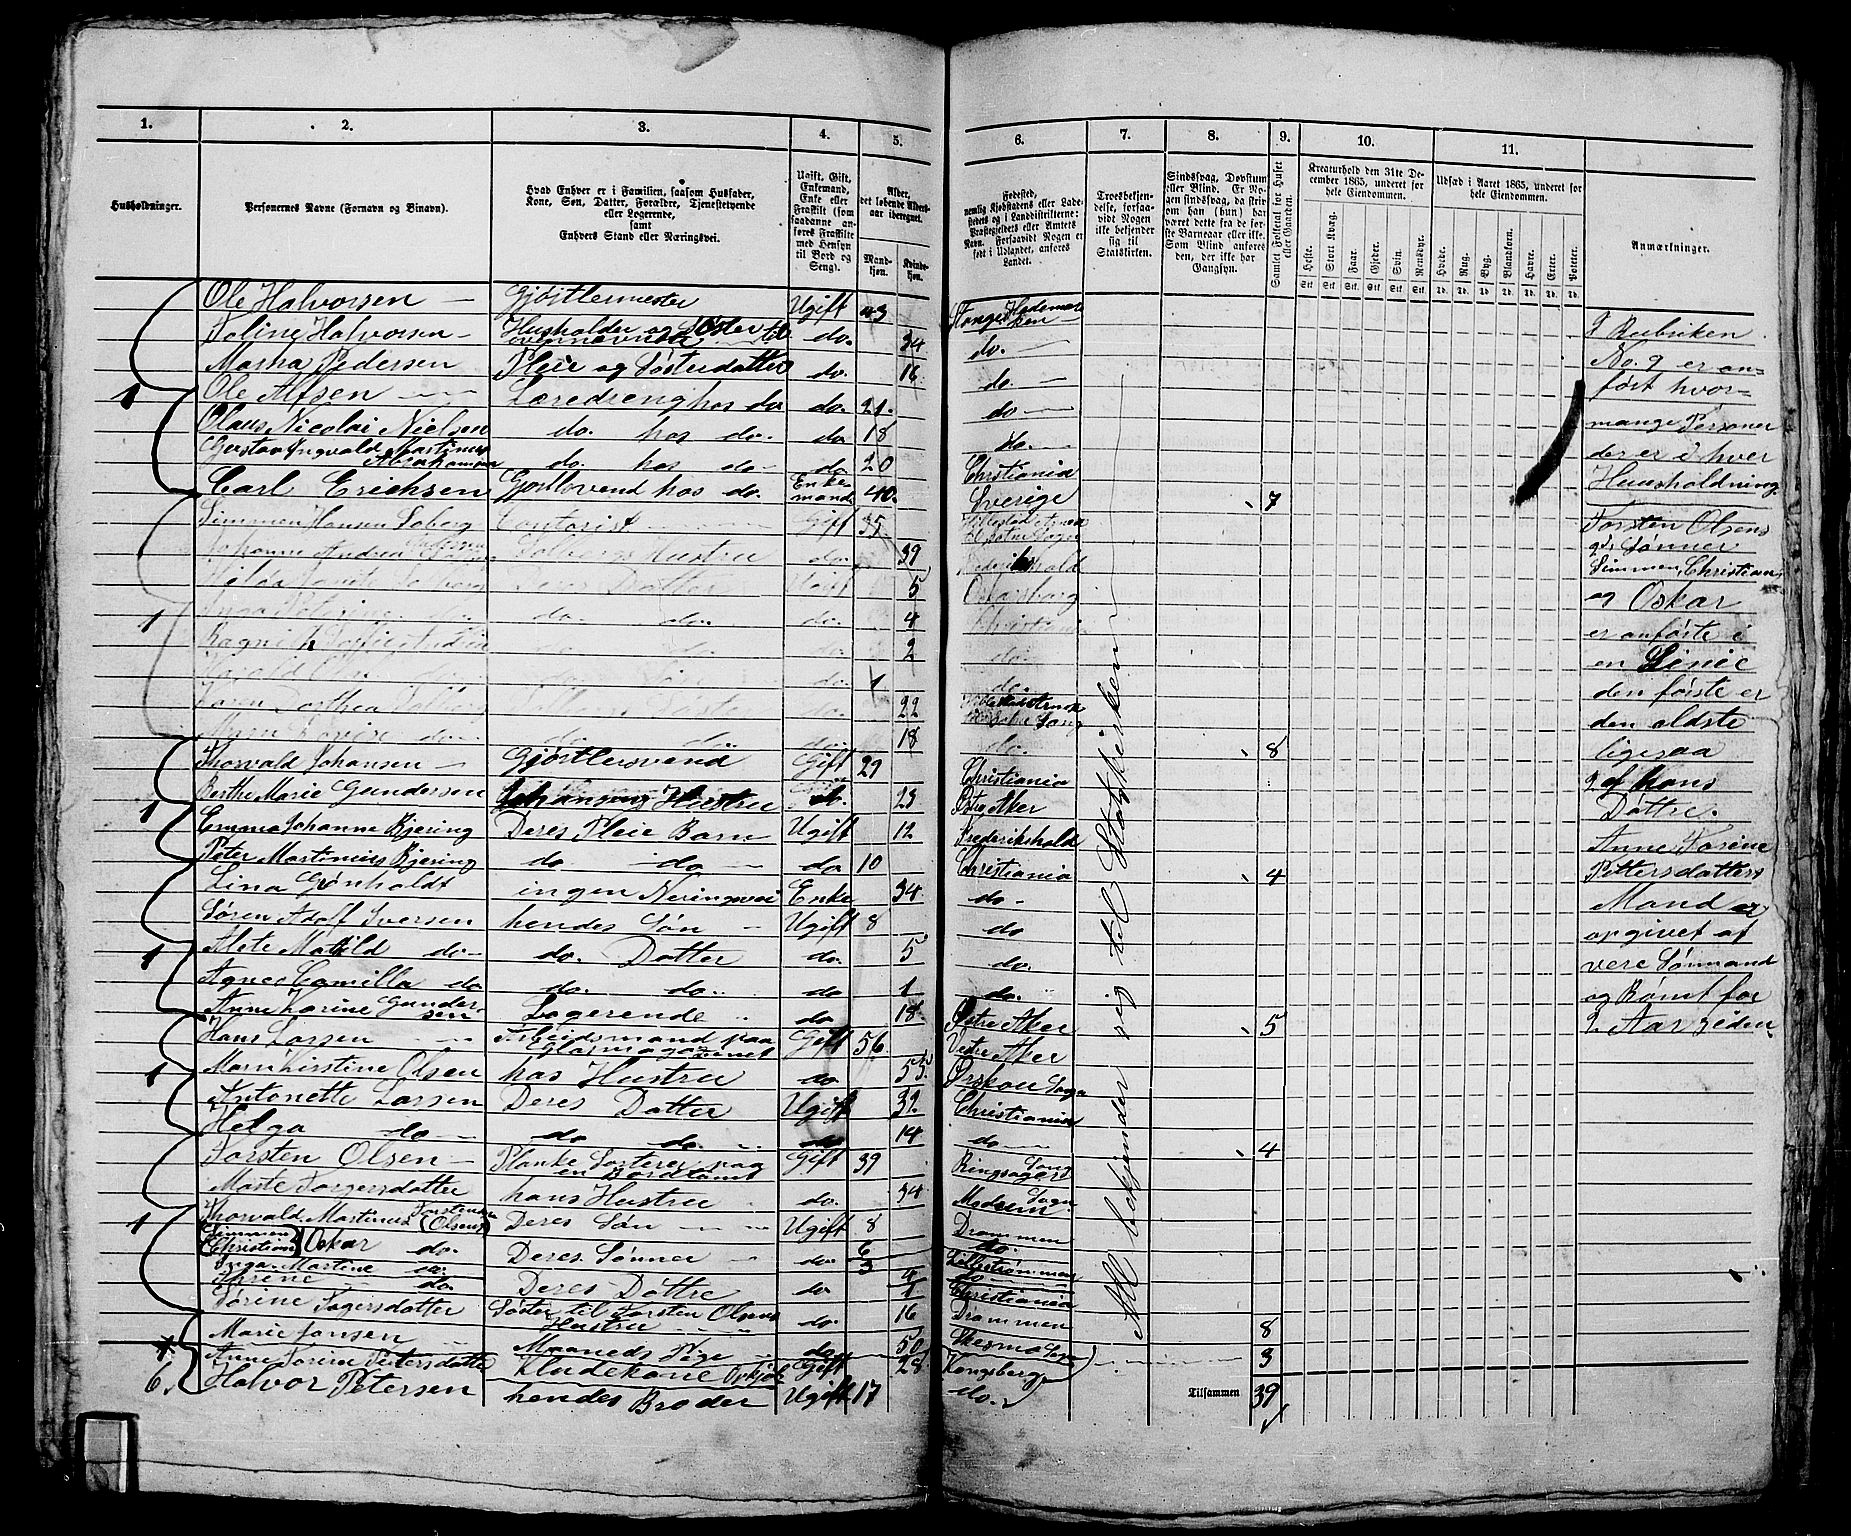 1. 2. 3. 4. 5. 6. 7. 8. 9. 10. 11.
Husholdninger.
Personernes Navne (Fornavn og Binavn).
Hvad Enhver er i Familien, saasom Husfader,
Kone, Søn, Datter, Forældre, Tjenestetyende
eller Logerende,
samt
Enhvers Stand eller Næringsvei.
Ugift, Gift,
Enkemand,
Enke eller
Fraskilt (som
saadanne an-
føres Fraskilte
med Hensyn
til Bord og
Seng).
Alder,
det løbende Alders-
aar iberegnet.
Mand-
kjøn.
Kvinde-
kjøn.
Fødested,
nemlig Kjøbstadens eller Lade-
stedets og i Landdistrikterne:
Præstegjeldets eller Amtets
Navn. Forsaavidt Nogen er
født i Udlandet, anføres
Landet.
Troesbekjen-
delse, forsaa-
vidt Nogen
ikke bekjender
sig til
Statskirken.
Sindssvag, Døvstum
eller Blind. Er No-
gen sindssvag, da skriv
om han (hun) har
været dette fra de før-
ste Barneaar eller ikke.
Som Blind anføres
den, der ikke har
Gangsyn.
Samlet Folketal for Huset
eller Gaarden.
Kreaturhold den 31te De-
cember 1865, underet for
hele Eiendommen.
Heste. Stort Kvæg. Faar. Gjeder. Svin. Rensdyr.
Stk. Stk. Stk. Stk. Stk. Stk.
Udsæd i Aaret 1865, underet for
hele Eiendommen.
Hvede. Rug. Byg. Blandkorn. Havre. Erter. Poteter.
Td. Td. Td. Td. Td. Td. Td.
Anmærkninger.
Ole Halvorsen Gjørtlermester Ugift 43 Stange Hedemar-
ken
Toline Halvorsen Husholder og Søster til
ovennævnte do. 34 do.
Martha Pedersen Pleie og Søsterdatter do. 16 do.
1 Ole Alfsen Læredreng hos do do. 21. do
Olaus Nicolai Nielsen do. hos do. do 18 do.
Gustav Ingvald Martinus
Abrahamsen do. hos do do 20 Christiania
Carl Erichsen Gjørtlsvend hos do. Enke-
mand 40. Sverige 7
Simmen Hansen Solberg Contorist Gift 35
Johanne Andrea Solbergs Hustru do. 39 Frederikshald
Deres Datter Ugift 5 Oskarsborg
1 Inga do. do. do. do. 4 Christiania
do. 2 do.
do. 1 do.
Karen Dorthea Solberg Solbergs Søster do. 22
do. do. do. do. 18 do. 8
Thorvald Johansen Gjørtlersvend Gift 29 Christiania
Berthe Marie Gundersen Johansens Hustru do. 23 Østre Aker
1 Emma Johanne Bjering Deres Pleie Barn Ugift 12 Frederikshald
Peter Martinius Bjering do do do 10 Christiania 4
Lina Grønholdt ingen Neringsvei Enke 34. do
Søren Adolf Iversen hendes Søn Ugift 8 do
1 Alete Matild do do. Datter do. 5 do.
Agnes Camilla do do. do. do 1 do.
Anne Karine Gunder-
sen Logerende do 18 Østre Aker 5
Hans Larsen Arbeidsmand paa
Glasmagazinet Gift 56. Vestre Aker
1 Marn Kirstine Olsen has Hustru do 53. Ørskou Sogn
Antonette Larsen Deres Datter Ugift 32. Christiania
Helga do do do. do 14 do 4
Torsten Olsen Planke Sorterer paa
en Bordtomt Gift 39 Ringsagers Sogn
Marte Torgersdatter hans Hustru do. 34. Modum Sogn
1 Thorvald Martinus Torstensen
(Olsen) Deres Søn Ugift 8 Drammen
Simmen
Christian Oskar do. Deres Sønner do. 6 3 do.
Inga Martine do. Lillestrømmen
Thrine do. Deres Døttre do 4 1 do Christiania
Sørine Torgersdatter Søster til Torsten Olsens
Hustru do. 16 Drammen 8
Marie Jansen Maaneds Pige do. 50 Skesmo Sogn
Anne Torine Petersdatter Kludekone Gift 28 Kongsberg 3
6. Halvor Petersen hendes Broder Ugift 17 do. Tilsammen 39
Alle bekjender sig til Statskirken
I Rubriken
No. 9 er an-
ført hvor-
mange Personer
der er i hver
Huusholdning
Torsten Olsens
2de Sønner
Simmen, Christian
og Oskar
er anførte i
en Linie
den første er
den ældste
ligesaa
2 af hans
Døttre.
Anne Torine
Pettersdatters
Mand er
opgivet at
vere Sømand
og Rømt for
2. Aar siden